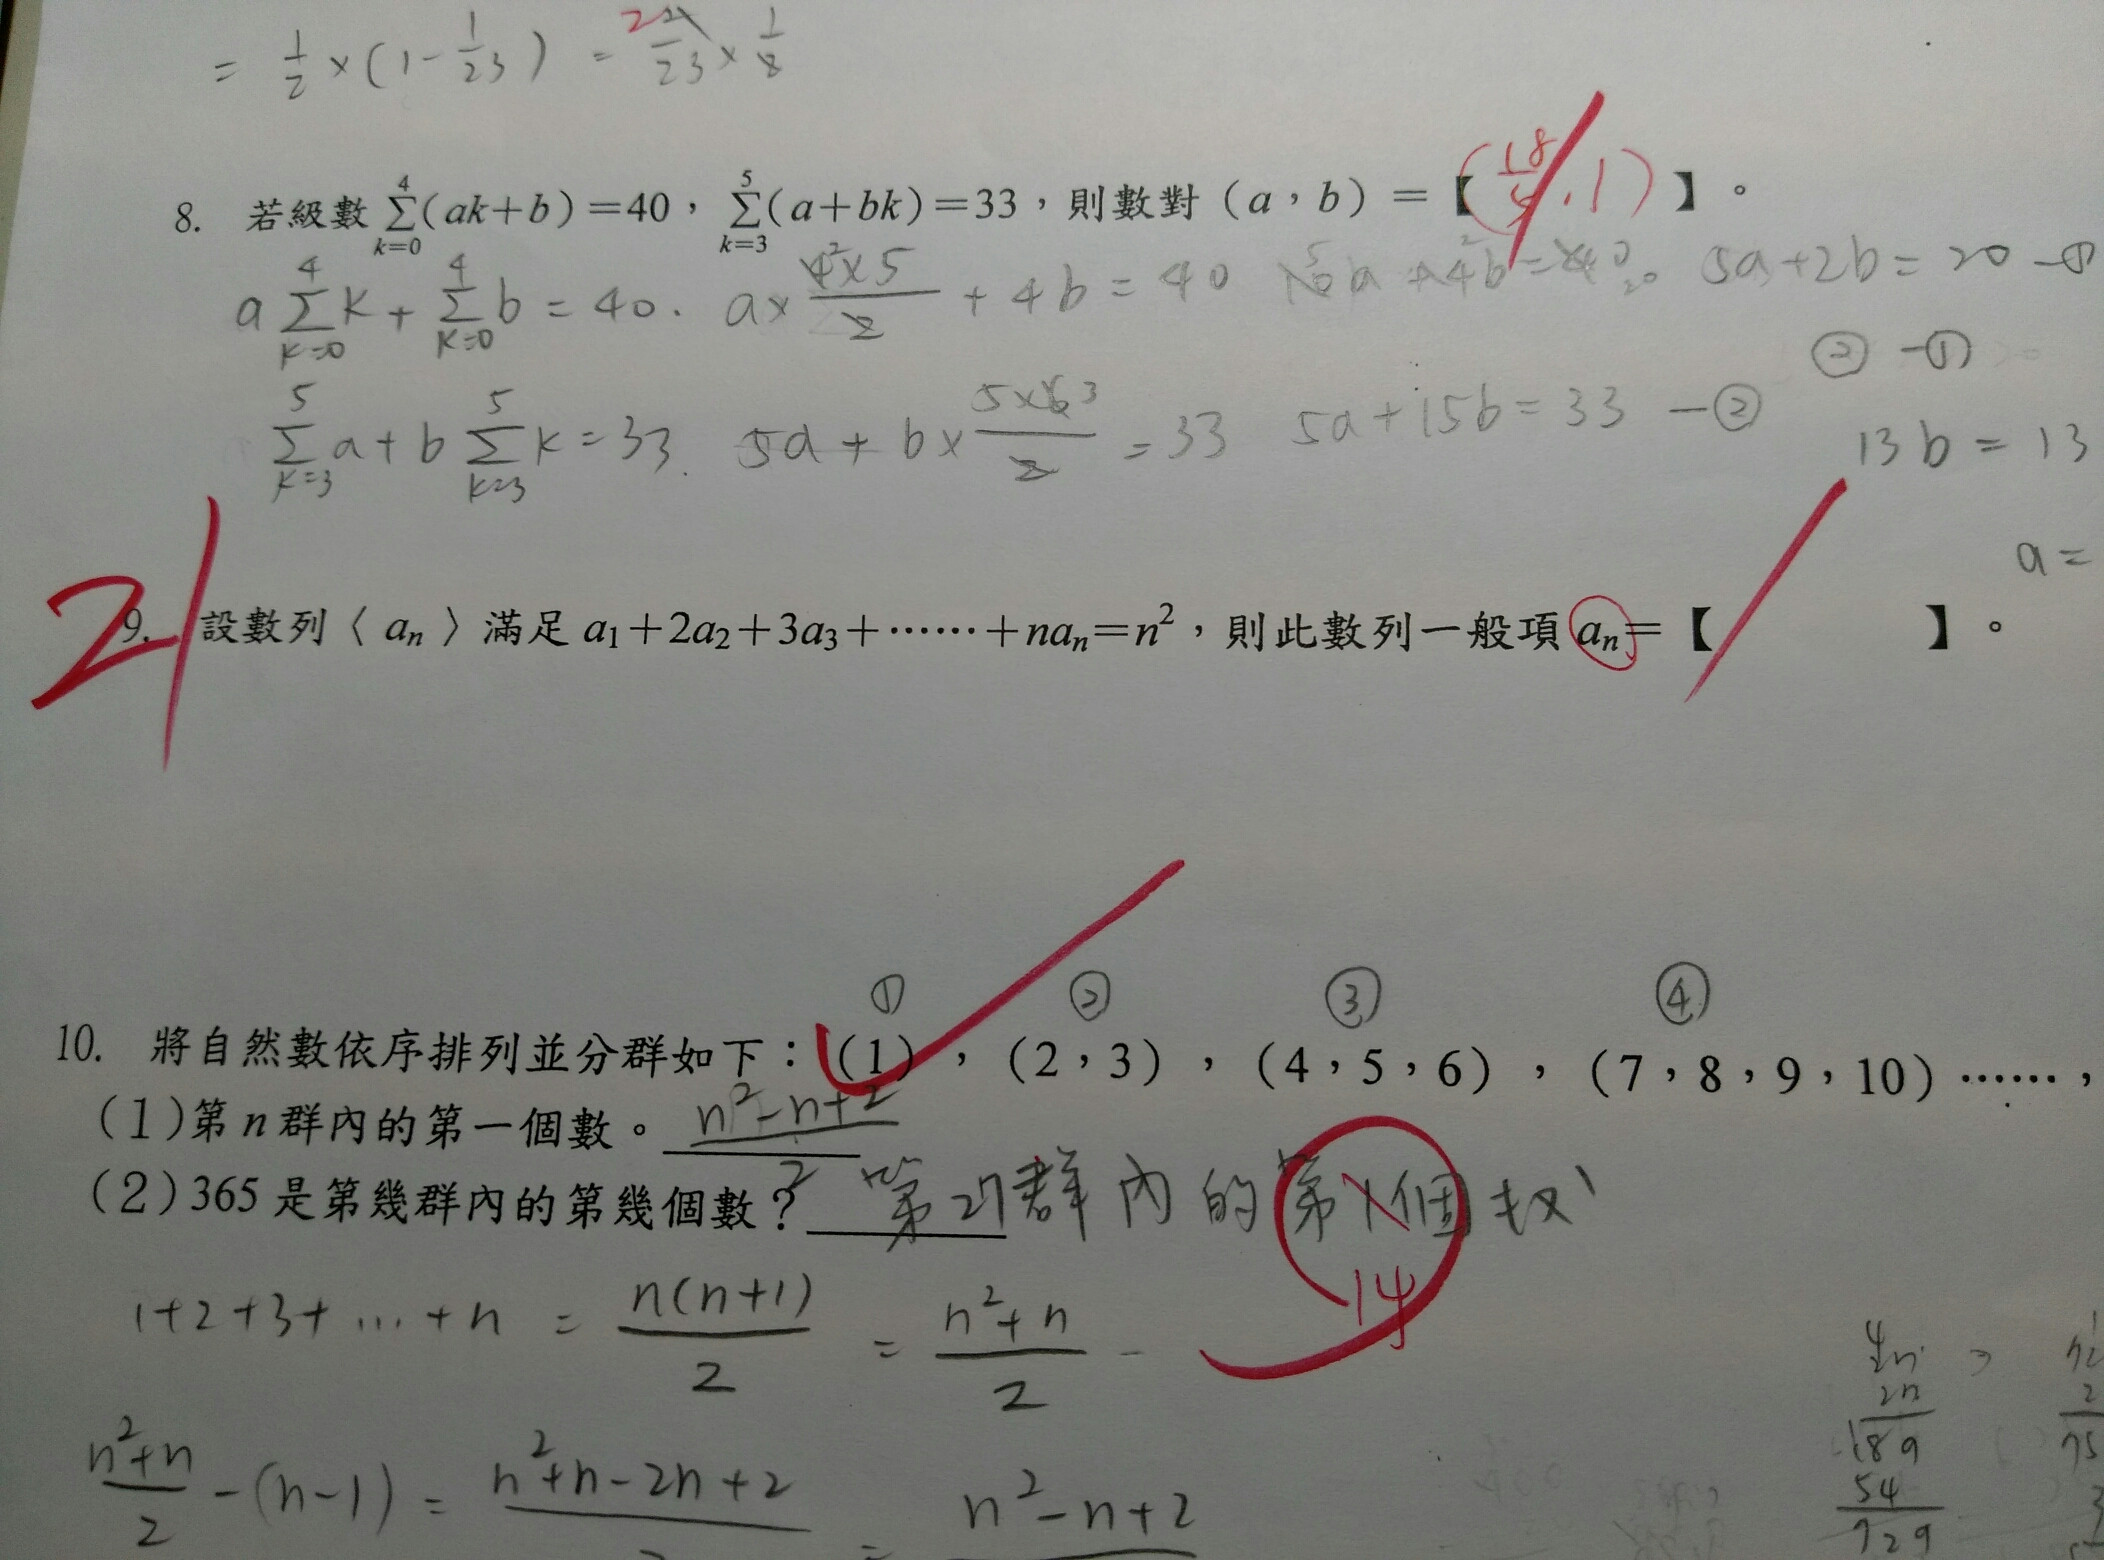 = 1/2 × (1 - 1/23) = 22/23 × 1/8
8. 若級數 Σ_{k=0}^{4}(ak+b)=40，Σ_{k=3}^{5}(a+bk)=33，則數對（a，b）＝【(18/5, 1)】。
a Σ_{K=0}^{4} K + Σ_{K=0}^{4} b = 40. a× 4²×5/2 + 4b = 40 5a+2b=20 -①
② -①
Σ_{K=3}^{5} a + b Σ_{K=3}^{5} K = 33. 5a + b× 5×6 3/2 = 33 5a+15b=33 -②
13b = 13
a=
21
9. 設數列〈a_n〉滿足 a₁+2a₂+3a₃+⋯⋯+na_n=n²，則此數列一般項 a_n=【 】。
① ② ③ ④
10. 將自然數依序排列並分群如下：(1)，(2，3)，(4，5，6)，(7，8，9，10)⋯⋯，
(1)第 n 群內的第一個數。 n²-n+2/2
(2)365 是第幾群內的第幾個數？ 第27群內的第1個数
14
1+2+3+...+n = n(n+1)/2 = n²+n/2 -
n²+n/2 -(n-1) = n²+n-2n+2 = n²-n+2
27
189
54
729